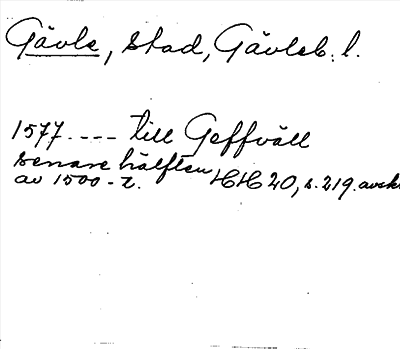 Gävle, stad, Gävleb. l.
1577. --- till Geffväll
senare hälften
av 1500-t. HH 20, s. 219. avskr